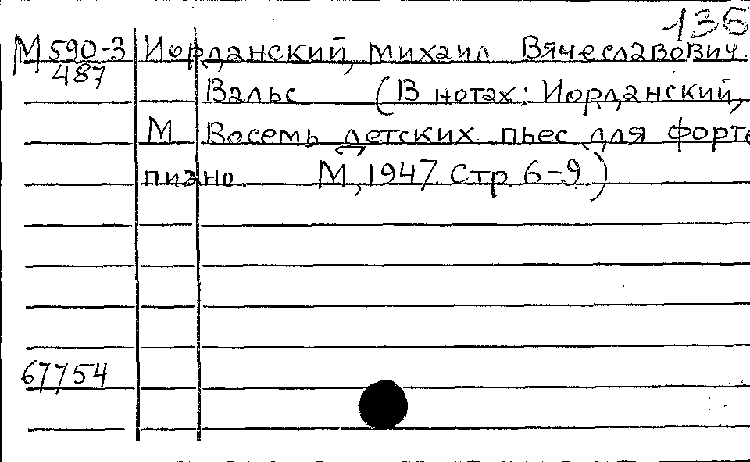 135
М 590-3 Иорданский, Михаил Вячеславович.
487
Вальс (В нотах: Иорданский,
М Восемь детских пьес для форте
пиано М, 1947 Стр 6-9)
67754